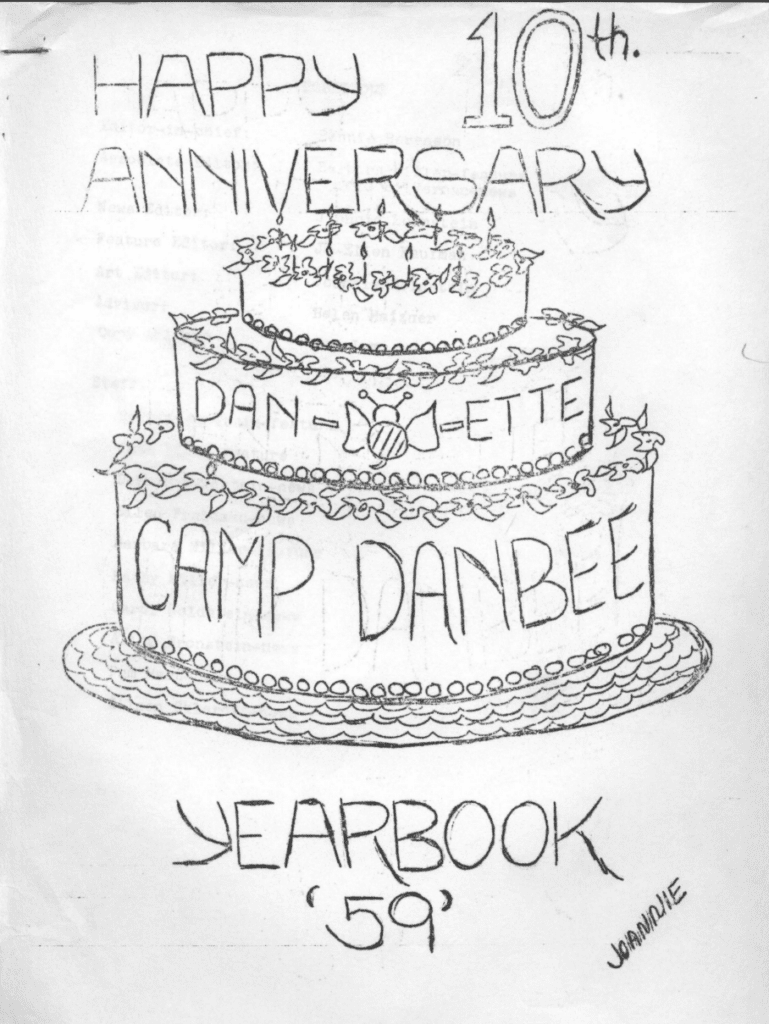 HAPPY 10th.
ANNIVERSARY
DAN- -ETTE
CAMP DANBEE
YEARBOOK
'59'
JOANNIE